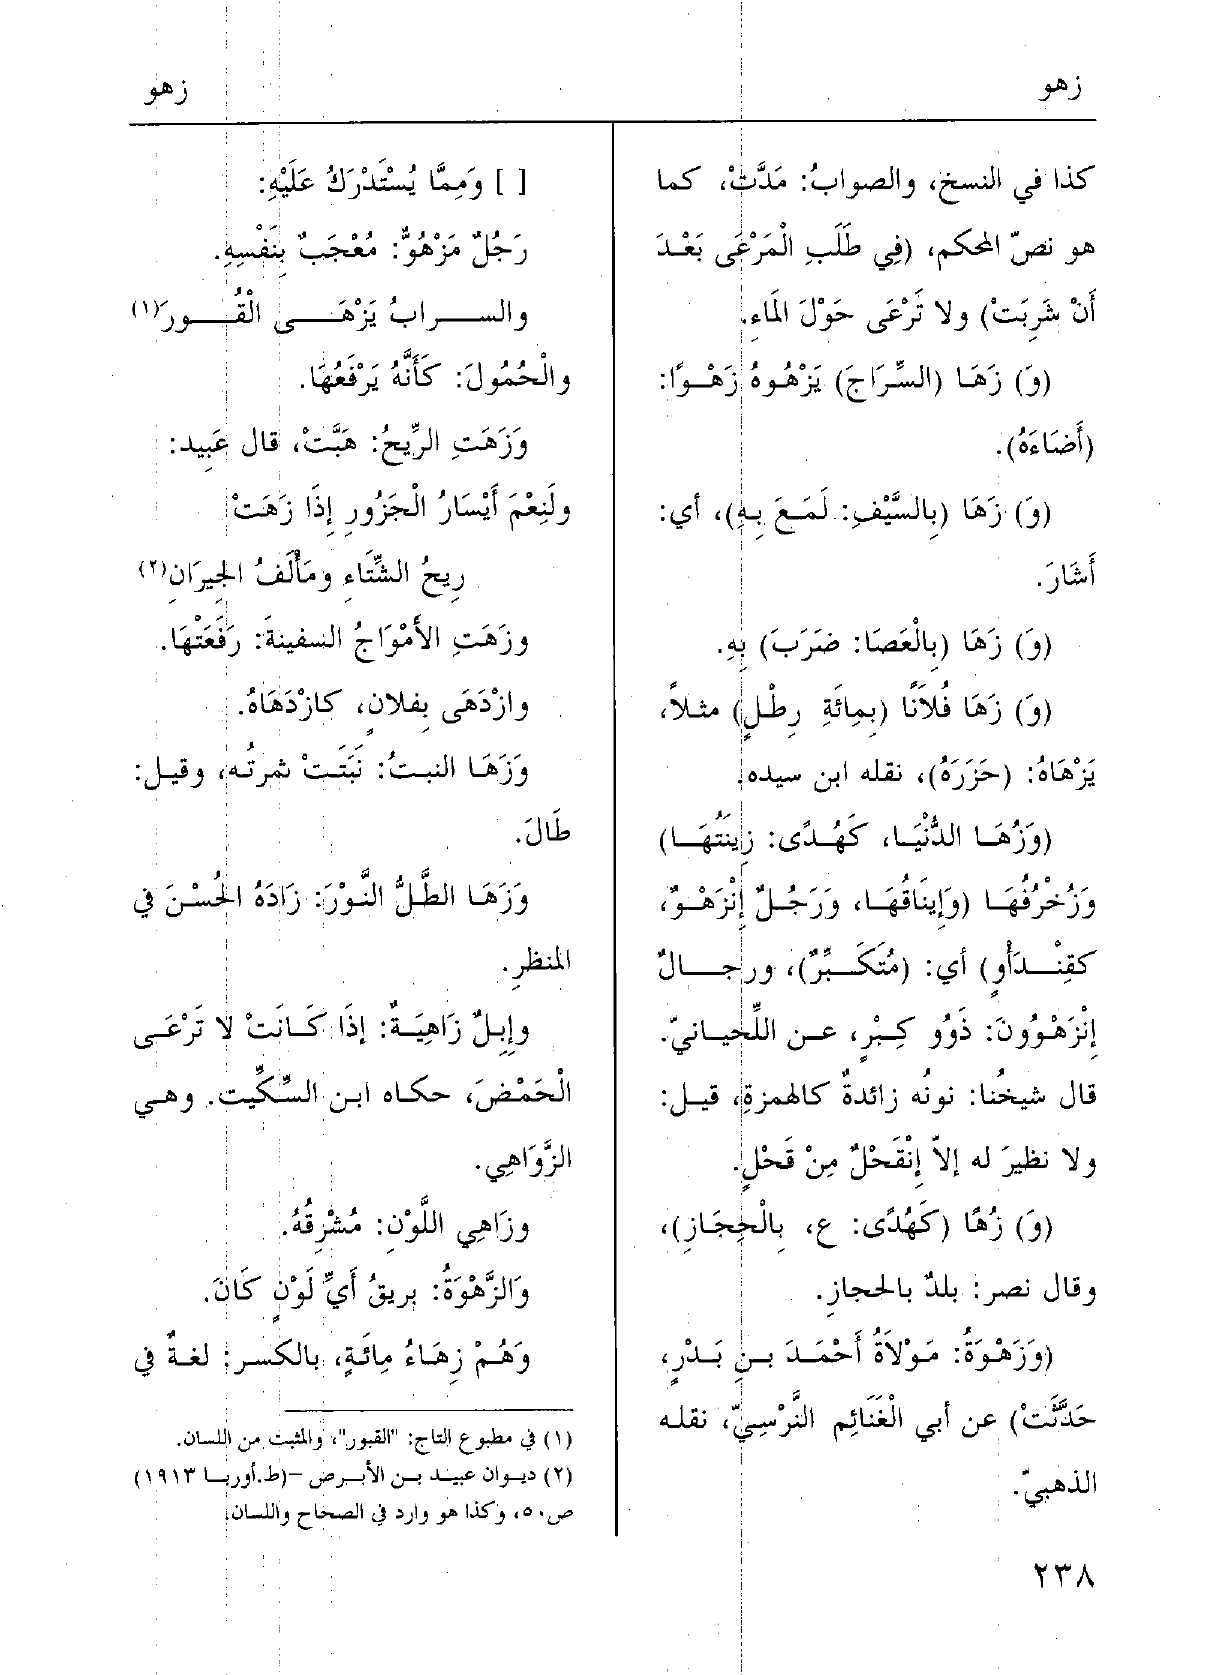 زهو
زهو
كذا في النسخ، والصوابُ: مَدَّتْ، كما
هو نصّ المحكم، (فِي طَلَبِ الْمَرْعَى بَعْدَ
أَنْ شَرِبَتْ) ولا تَرْعَى حَوْلَ المَاءِ.
(وَ) زَهَا (السِّرَاجَ) يَزْهُوهُ زَهْوًا:
(أَضَاءَهُ).
(وَ) زَهَا (بِالسَّيْفِ: لَمَعَ بِهِ)، أي:
أَشَارَ.
(وَ) زَهَا (بِالْعَصَا: ضَرَبَ) بِهِ.
(وَ) زَهَا فُلَانًا (بِمِائَةِ رِطْلٍ) مثلاً،
يَزْهَاهُ: (حَزَرَهُ)، نقله ابن سيده.
(وَزُهَا الدُّنْيَا، كَهُدًى: زِينَتُهَا)
وَزُخْرُفُهَا (وَإِينَاقُهَا، وَرَجُلٌ إِنْزَهْوٌ،
كَقِنْدَأْوٍ) أي: (مُتَكَبِّرٌ)، ورجالٌ
إِنْزَهْوُونَ: ذَوُو كِبْرٍ، عن اللِّحيانيّ.
قال شيخُنا: نونُه زائدةٌ كالهمزةِ، قيل:
ولا نظيرَ له إلاّ إِنْقَحْلٌ مِنْ قَحْلٍ.
(وَ) زُهًا (كَهُدًى: ع، بِالْحِجَازِ)،
وقال نصر: بلدٌ بالحجازِ.
(وَزَهْوَةُ: مَوْلاَةُ أَحْمَدَ بنِ بَدْرٍ،
حَدَّثَتْ) عن أبي الْغَنَائِمِ النَّرْسِيّ، نقله
الذهبيّ.
[ ] وَمِمَّا يُسْتَدْرَكُ عَلَيْهِ:
رَجُلٌ مَزْهُوٌّ: مُعْجَبٌ بِنَفْسِهِ.
والسرابُ يَزْهَى الْقُورَ(١)
والْحُمُولَ: كَأَنَّهُ يَرْفَعُهَا.
وَزَهَتِ الرِّيحُ: هَبَّتْ، قال عَبِيد:
ولَنِعْمَ أَيْسَارُ الْجَزُورِ إِذَا زَهَتْ
رِيحُ الشِّتَاءِ ومَأْلَفُ الجِيرَانِ(٢)
وزَهَتِ الأَمْوَاجُ السفينةَ: رَفَعَتْهَا.
وازْدَهَى بِفلانٍ، كازْدَهَاهُ.
وَزَهَا النبتُ: نَبَتَتْ ثمرتُه، وقيل:
طَالَ.
وَزَهَا الطَّلُّ النَّوْرَ: زَادَهُ الحُسْنَ في
المنظرِ.
وإِبِلٌ زَاهِيَةٌ: إِذَا كَانَتْ لاَ تَرْعَى
الْحَمْضَ، حكاه ابن السِّكِّيت. وهي
الزَّوَاهِي.
وزَاهِي اللَّوْنِ: مُشْرِقُهُ.
وَالزَّهْوَةُ: بريقُ أَيِّ لَوْنٍ كَانَ.
وَهُمْ زِهَاءُ مِائَةٍ، بالكسر: لغةٌ في
(١) في مطبوع التاج: "القبور"، والمثبت من اللسان.
(٢) ديوان عبيد بن الأبرص –(ط.أوربا ١٩١٣)
ص٥٠، وكذا هو وارد في الصحاح واللسان.
٢٣٨